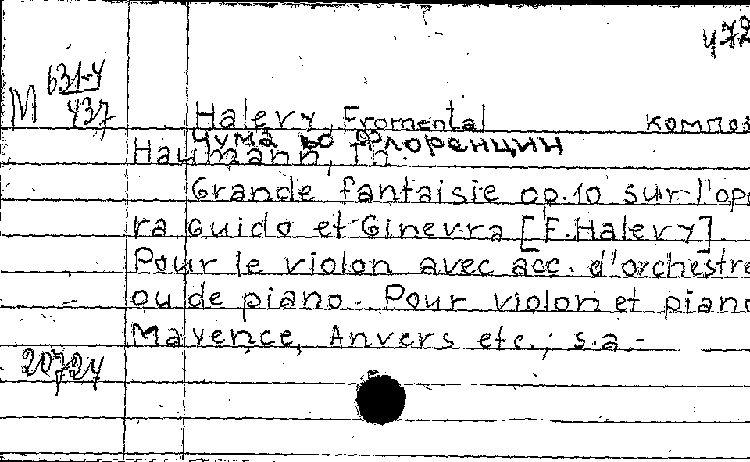 472
M 631-4
437
Halevy, Fromental композ
Чума во Флоренции
Haumann, Th.
Grande fantaisie op.10 sur l'opé
ra Guido et Ginevra [F.Halevy].
Pour le violon avec acc. d'orchestre
ou de piano. Pour violon et piano
Mayence, Anvers etc.; s.a.-
20724